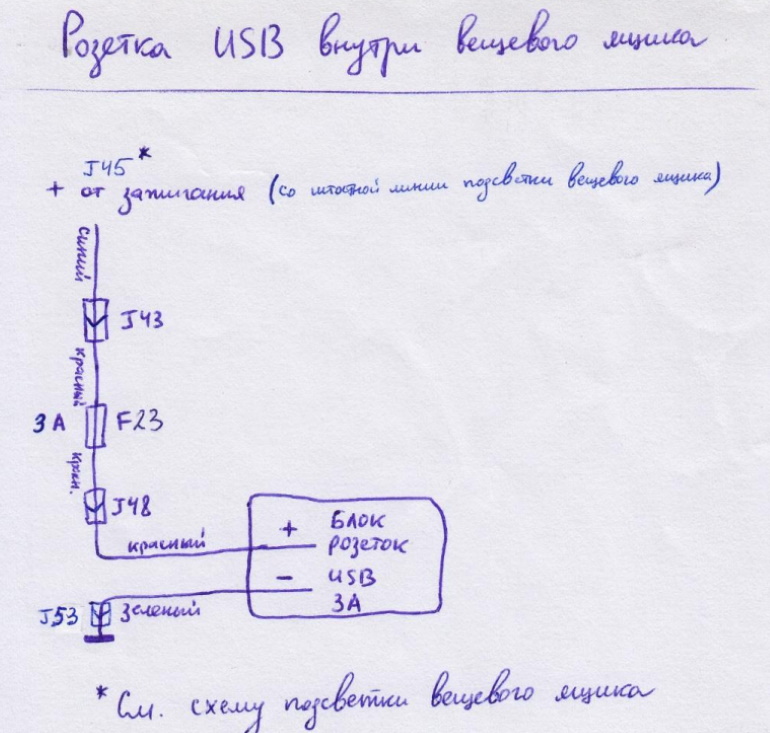 Розетка USB внутри вещевого ящика
J45*
+ от зажигания (со штатной линии подсветки вещевого ящика)
синий
J43
красный
3А F23
красн.
J48
красный
+ БЛОК
РОЗЕТОК
- USB
3А
J53 зеленый
* См. схему подсветки вещевого ящика